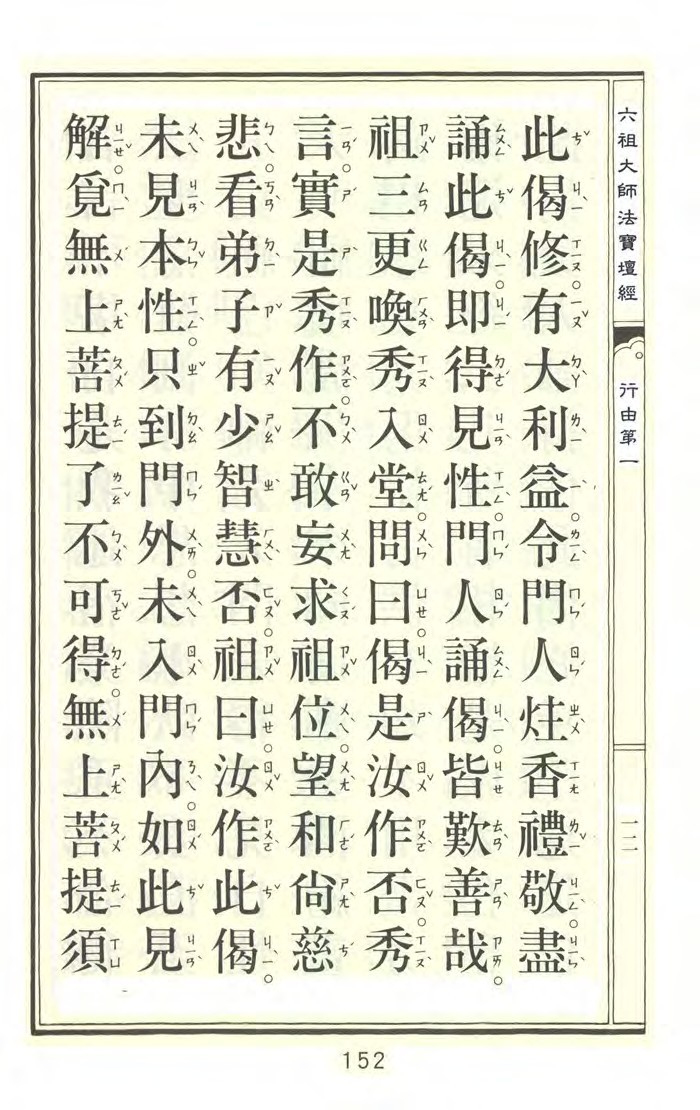 六祖大師法寶壇經 行由第一 一二
此偈修有大利益。令門人炷香禮敬。盡
誦此偈。即得見性。門人誦偈。皆歎善哉。
祖三更喚秀入堂。問曰。偈是汝作否。秀
言。實是秀作。不敢妄求祖位。望和尚慈
悲。看弟子有少智慧否。祖曰。汝作此偈。
未見本性。只到門外。未入門內。如此見
解。覓無上菩提。了不可得。無上菩提。須
152